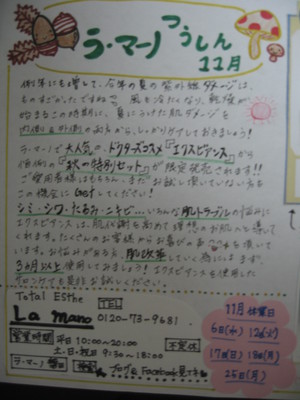 ラ・マーノ つうしん
11月
例年にも増して、今年の夏の紫外線ダメージは、
ものすごかったですね 風も冷たくなり、乾燥が
始まるこの時期に、夏にうけた肌ダメージを
内側&外側の両方から、しっかりケアしておきましょう!
ラ・マーノで大人気の、ドクターズコスメ『エクスビアンス』から
恒例の『秋の特別セット』が限定発売されます!!
ご愛用者様はもちろん、まだお試し頂いていない方も
この機会にGetしてください!
シミ・シワ・たるみ・ニキビ…いろんな肌トラブルの悩みに
エクスビアンスは、肌代謝を高めて理想のお肌へと導いて
くれます。たくさんのお客様からお喜びのお声を頂いて
います。お悩みが有る方、肌改革していく為にはまず、
3ヵ月以上使用してみましょう!エクスビアンスを使用した
も是非お試しください。
Total Esthe
La mano
TEL
0120-73-9681
営業時間 平日 10:00~20:00
土・日・祝日 9:30~18:00
不定休
ラ・マーノ 磐田 検索 ブログ&Facebook見てネ
11月 休業日
6日(水) 12日(火)
17日(日) 18日(月)
25日(月)